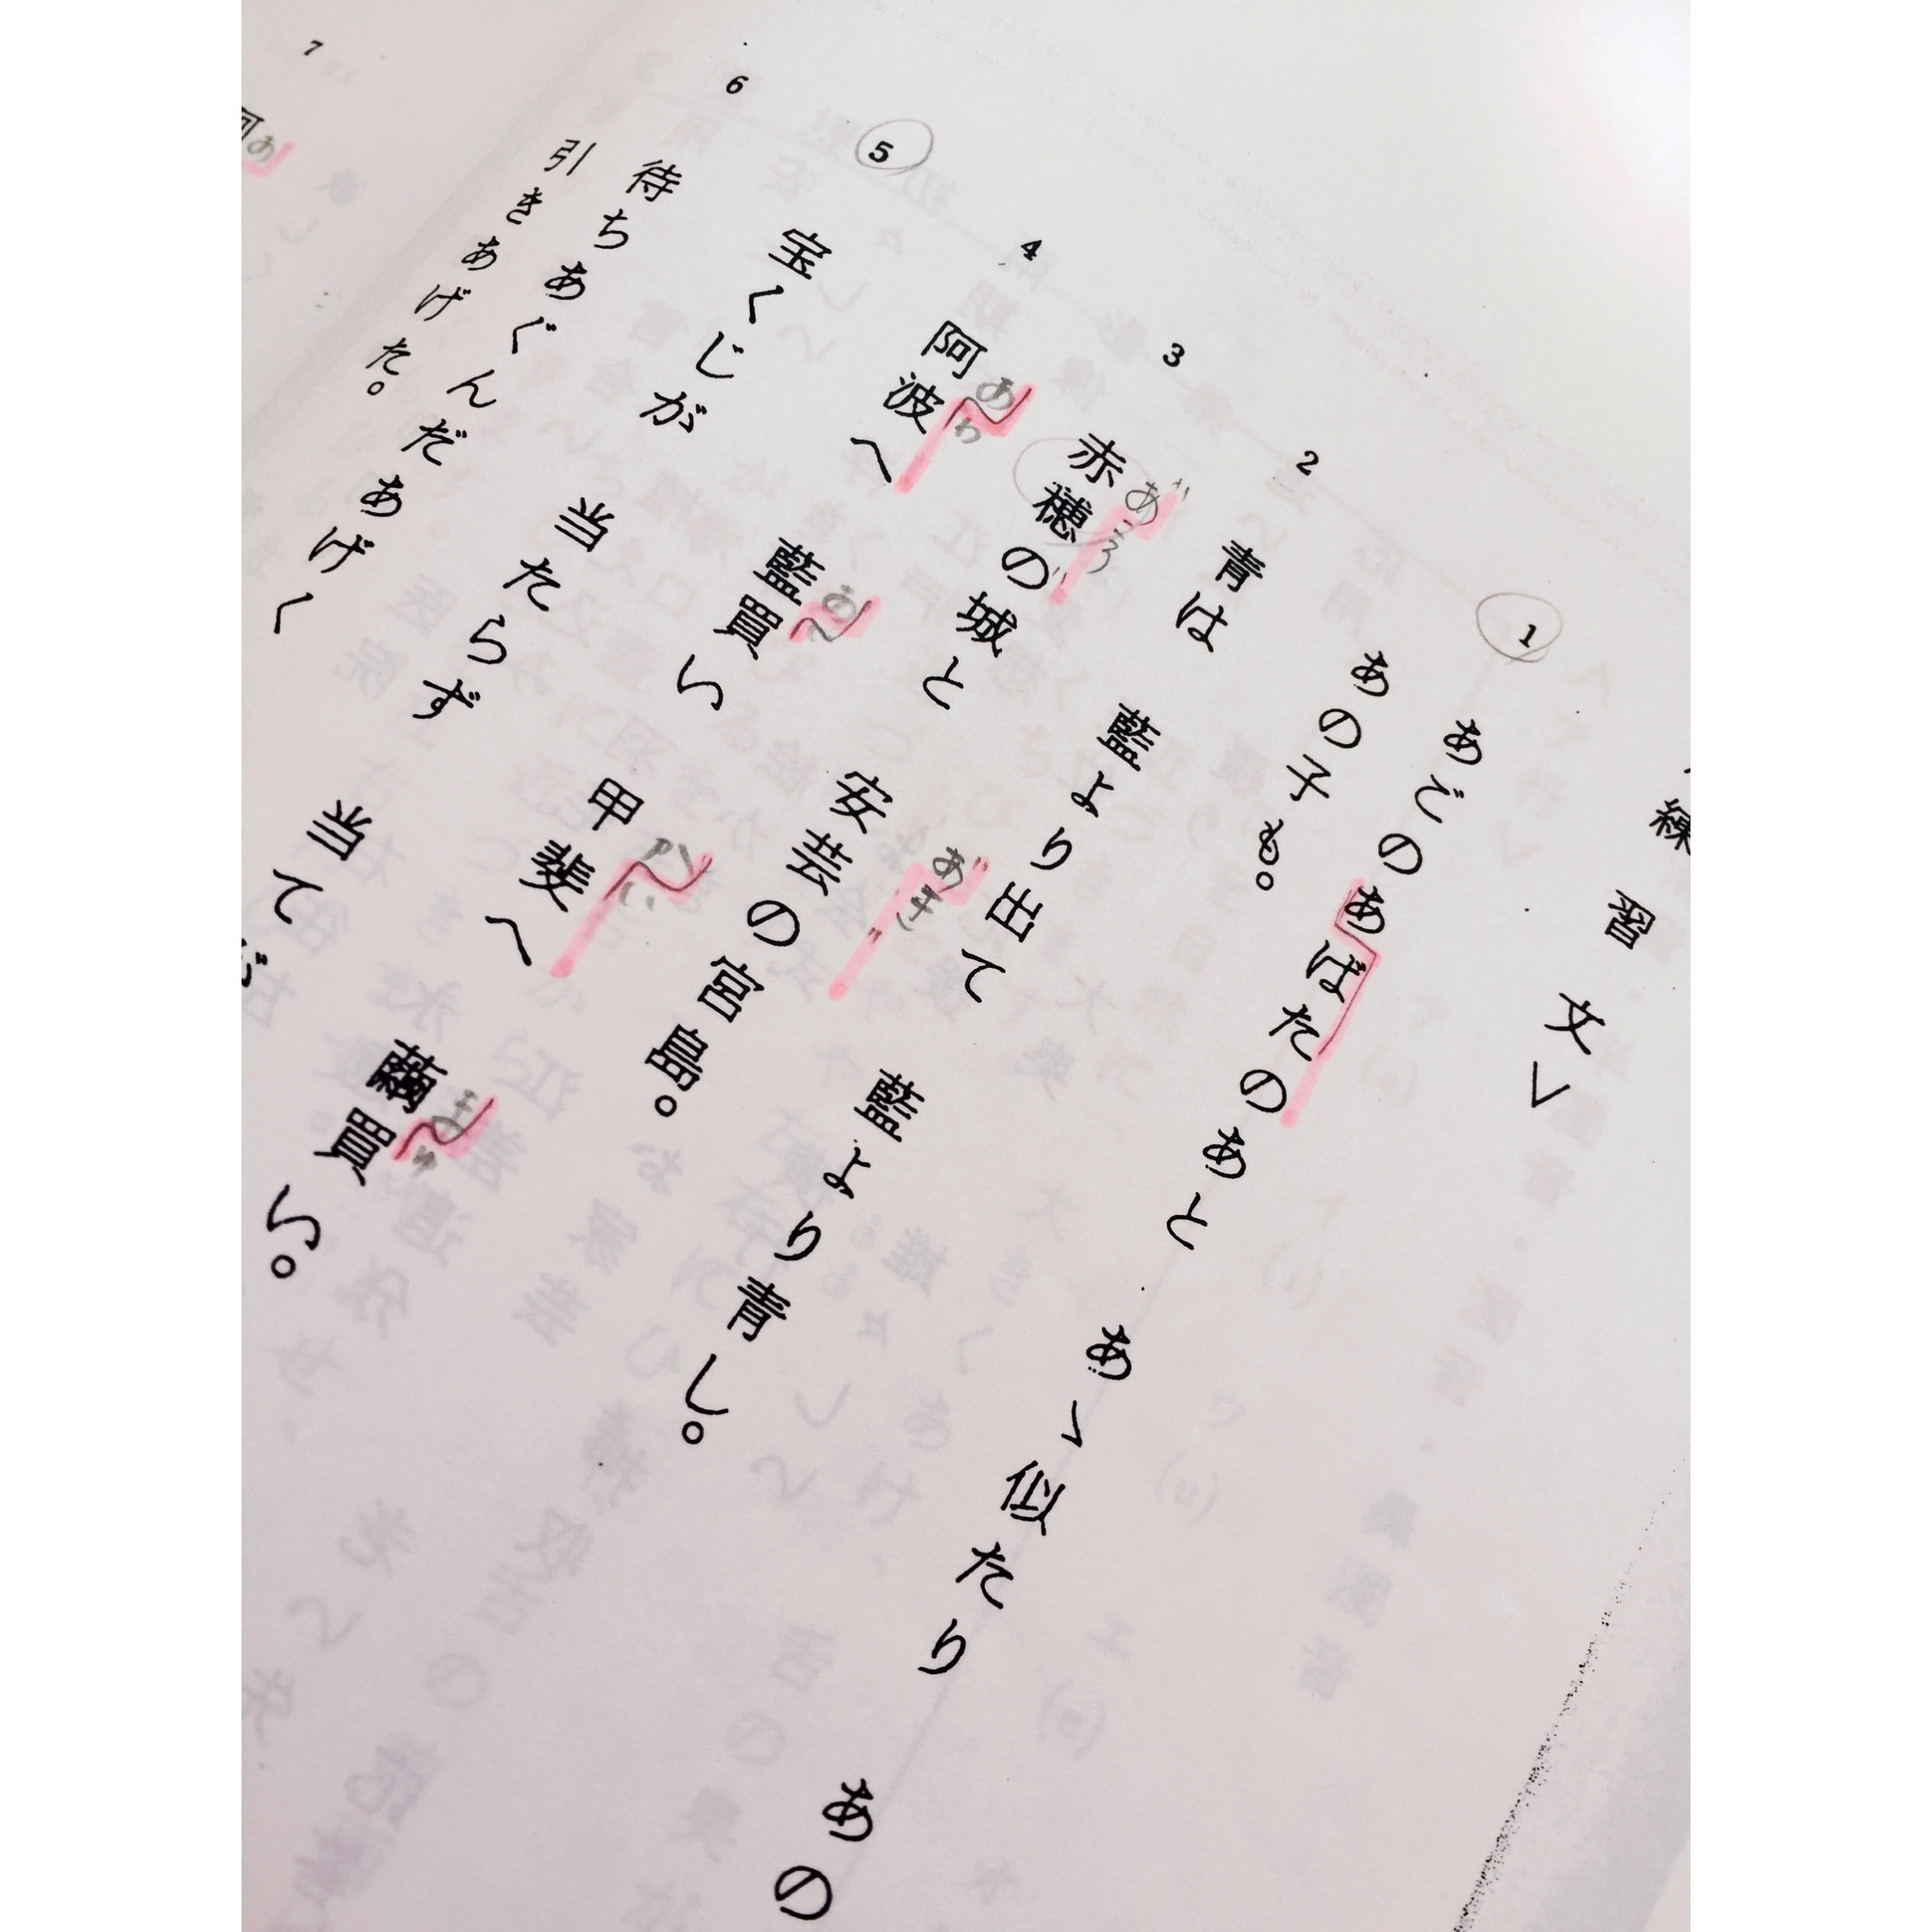 練習文>
1 あごのあばたのあと あゝ似たり あの
あの子も。
2 青は 藍より出て 藍より青し。
あこう あき
3 赤穂の城と 安芸の宮島。
あわ あ かい まゆ
4 阿波へ 藍買い 甲斐へ 繭買い。
5 宝くじが 当たらず 当て
6 待ちあぐんだあげく
引きあげた。
あ
7 阿